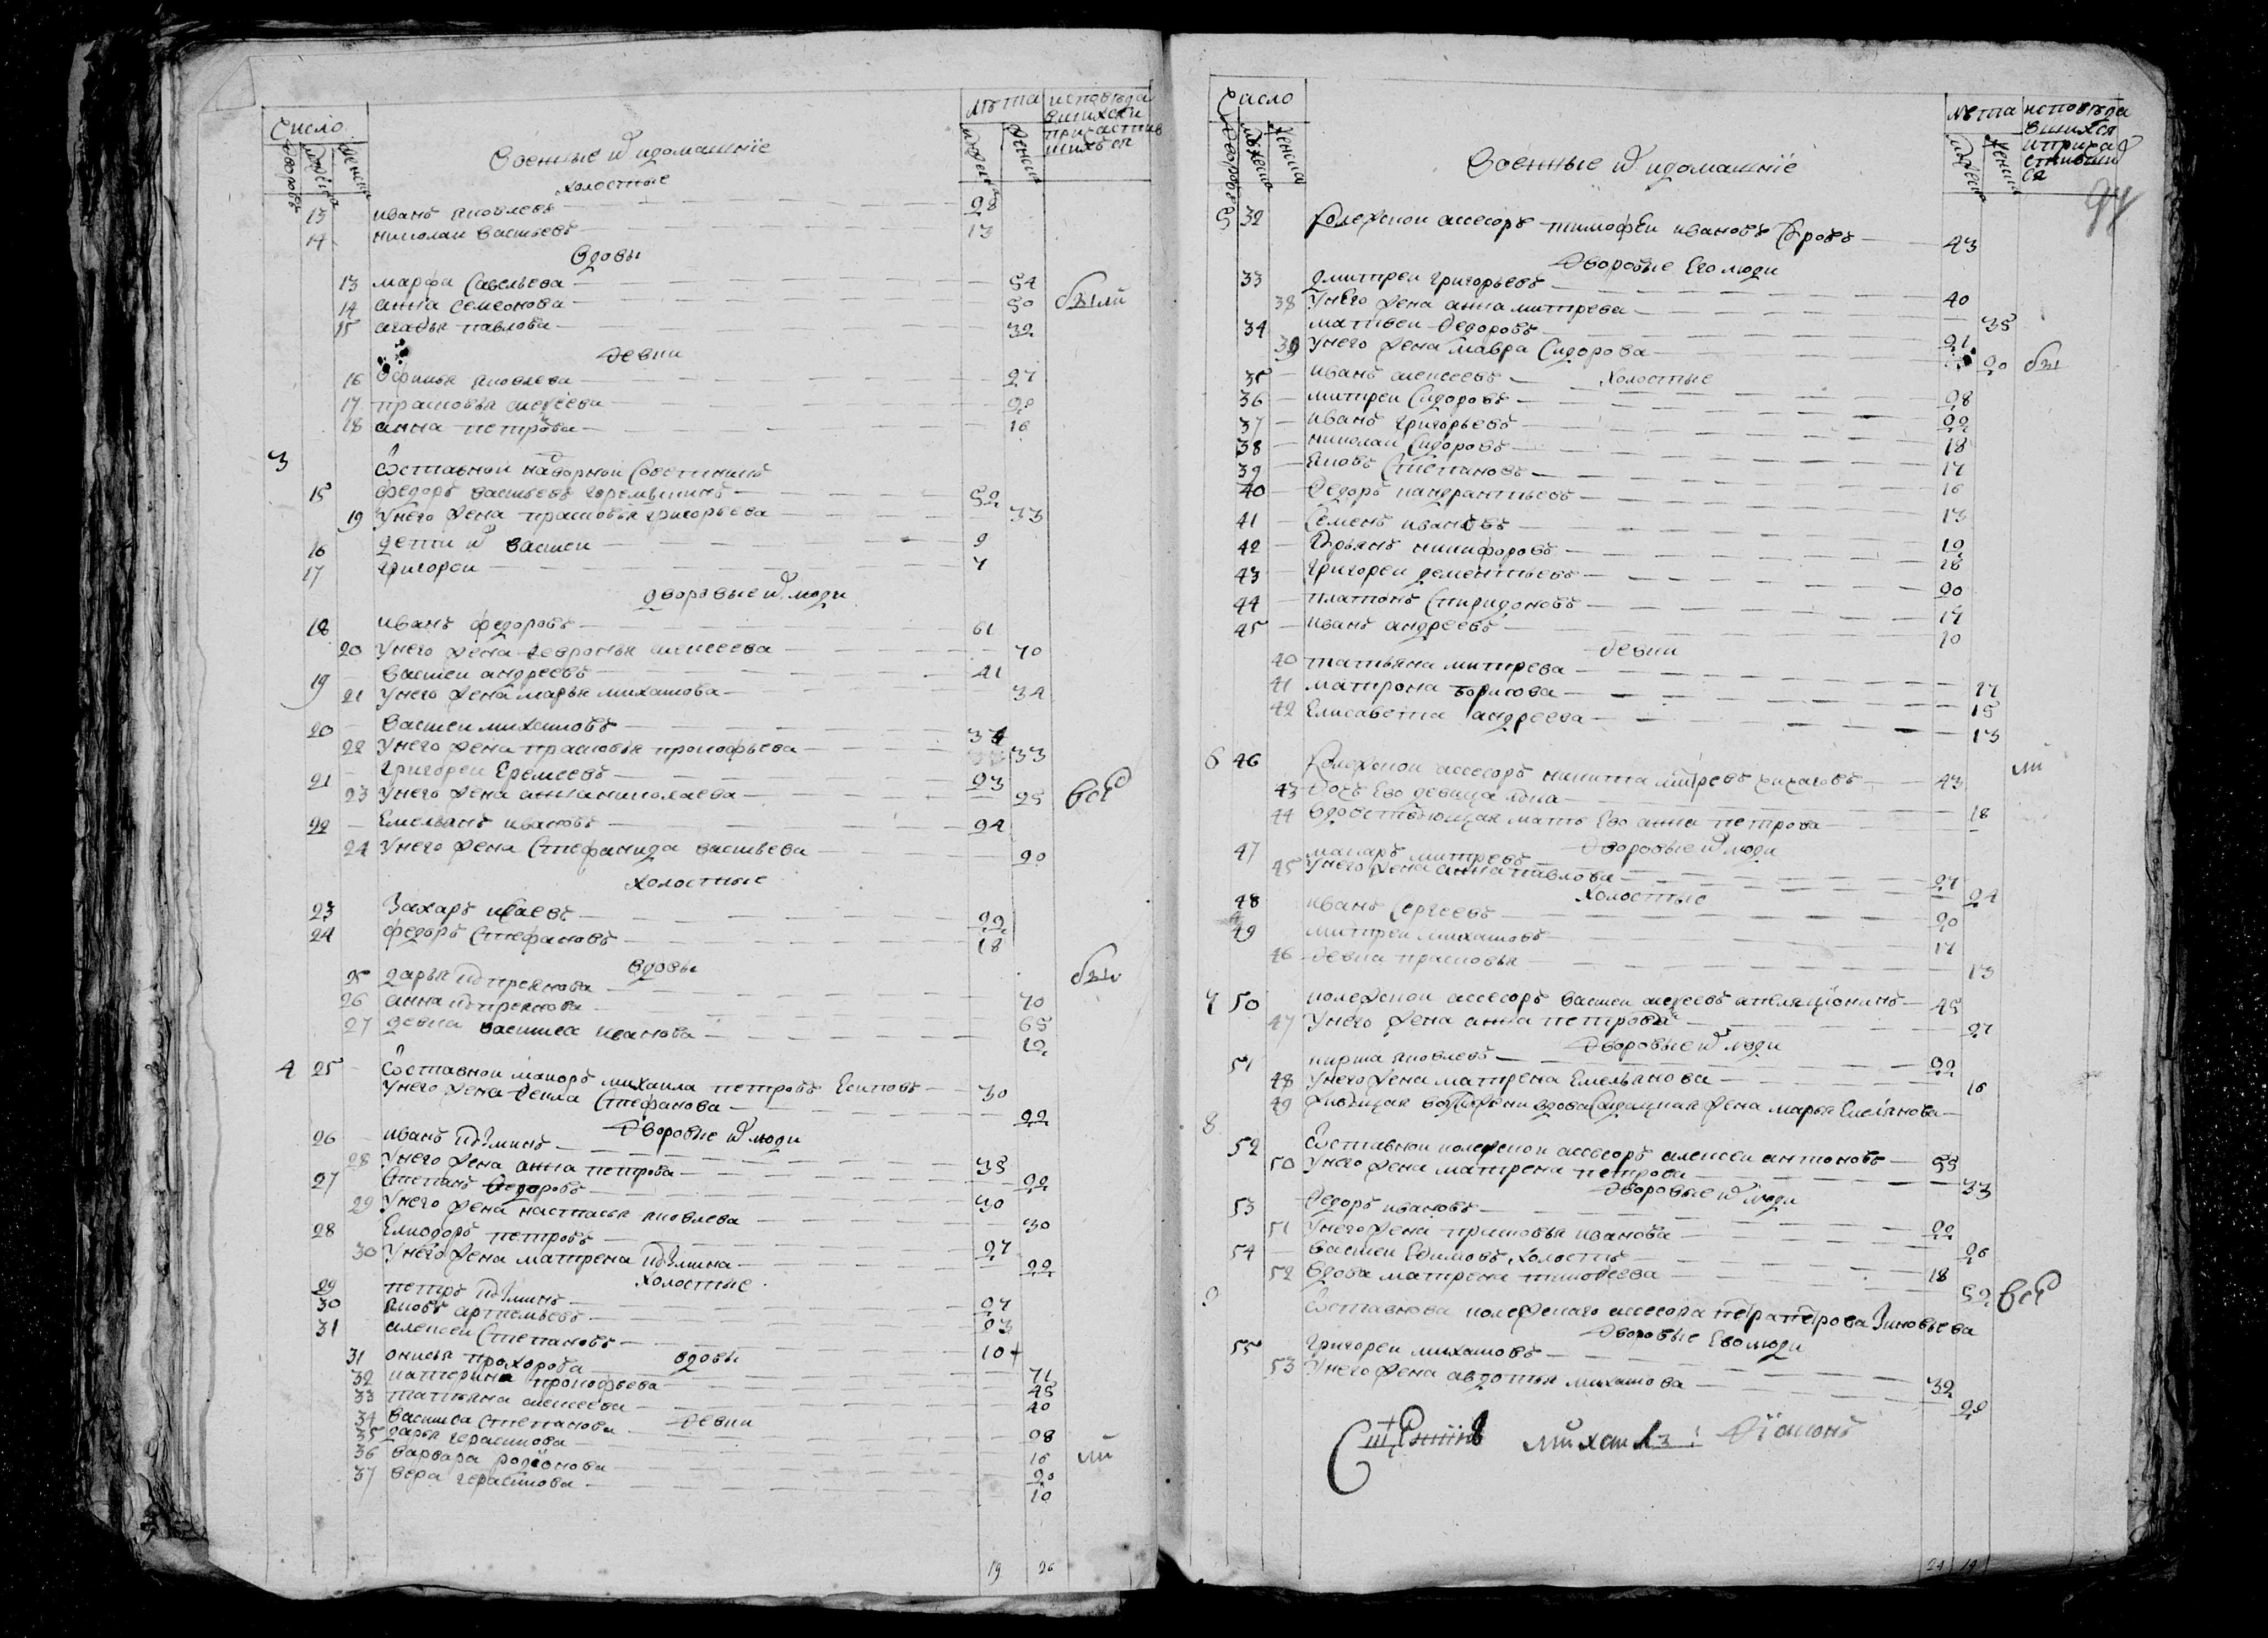 Число
лѣта
исповѣда
вшихся и
причастив
шихъся
дворовъ
мужеска
женска
Военные и ихдомашнїе
холостные
13 иванъ яковлевъ 28
14 николаи васильевъ 13
вдовы
13 марфа савельева 54
14 анна семеонова 50 были
15 агафья павлова 32
девки
16 офимья яковлева 27
17 прасковья алексеева 20
18 анна петрова 16
3 Отставной надворной советникъ
15 федоръ васильевъ горемыкинъ 52
19 Унего жена прасковья григорьева 33
16 дети их василеи 9
17 григореи 7
дворовые их люди
18 иванъ федоровъ 61
20 Унего жена февронья алексеева 70
19 василеи андреевъ 41
21 Унего жена марья михаилова 34
20 василеи михаиловъ 37
22 Унего жена прасковья прокофьева 33
21 григореи Еремеевъ 23
23 Унего жена анна николаева 25 все
22 Емельянъ ивановъ 24
24 Унего жена Стефанида васильева 20
холостные
23 Захаръ исаевъ 22
24 федоръ Стефановъ 18
вдовы
25 дарья куприянова 70 бы
26 анна куприянова 65
27 девка василиса иванова 12
4 25 Отставной маиоръ михаила петровъ Есиповъ 30
Унего жена фекла Стефанова 22
Дворовые их люди
26 иванъ кузминъ 35
28 Унего жена анна петрова 22
27 Степанъ федоровъ 30
29 Унего жена настасья яковлева 30
28 Елиодоръ петровъ 27
30 Унего жена матрена кузмина 22
холостные
29 петръ кузминъ 27
30 яковъ артемьевъ 23
31 алексеи Степановъ 10
вдовы
31 онисья прохорова 71
32 катерина прокофьева 45
33 татьяна алексеева 40
девки
34 василиса степанова 28
35 дарья герасимова 16 ли
36 варвара родїонова 20
37 вера герасимова 10
19 26
Число
лѣта
исповѣда
вшихся
и прича
стивши
ся
Военные и ихдомашнїе
97
5 32 Колежскои ассесоръ тимофеи ивановъ 43
Дворовые Его люди
33 дмитреи григорьевъ 40
38 Унего жена анна митрева 35
34 матвеи федоровъ 21
39 Унего жена мавра Сидорова 20 бы
холостные
35 иванъ алексеевъ 28
36 митреи Сидоровъ 22
37 иванъ григорьевъ 18
38 николаи Сидоровъ 17
39 яковъ Степановъ 16
40 федоръ кандратьевъ 13
41 Семенъ ивановъ 12
42 никифоровъ 18
43 григореи дементьевъ 20
44 платонъ Спиридоновъ 17
45 иванъ андреевъ 10
девки
40 татьяна митрева 17
41 матрона борисова 15
42 Елисавета андреева 13
6 46 Колежскои ассесоръ никита митревъ 43 ли
43 Дочь Ево девица 18
44 вдовствующая мать Ево анна петрова
Дворовые их люди
47 макаръ митревъ 27
45 Унего жена анна павлова 24
холостные
48 иванъ Сергеевъ 20
49 митреи михаиловъ 17
46 девка прасковья 13
7 50 колежскои ассесоръ василеи алексеевъ 45
47 Унего жена анна петрова 27
Дворовые их люди
51 кирила яковлевъ 22
48 Унего жена матрена Емельянова 16
49 жена марья Емельянова
8
52 Отставнои колежскои ассесоръ алексеи антоновъ 55
50 Унего жена матрена петрова 33
Дворовые их люди
53 федоръ ивановъ 22
51 Унего жена прасковья иванова 26
54 василеи Ефимовъ холостъ 18
52 вдова матрена тимофеева 52 все
9 Отставнова колежскаго ассесора петра петрова Зиновьева
Дворовые Ево люди
55 григореи михаиловъ 32
53 Унего жена авдотья михаилова 22
михаилъ
24 19